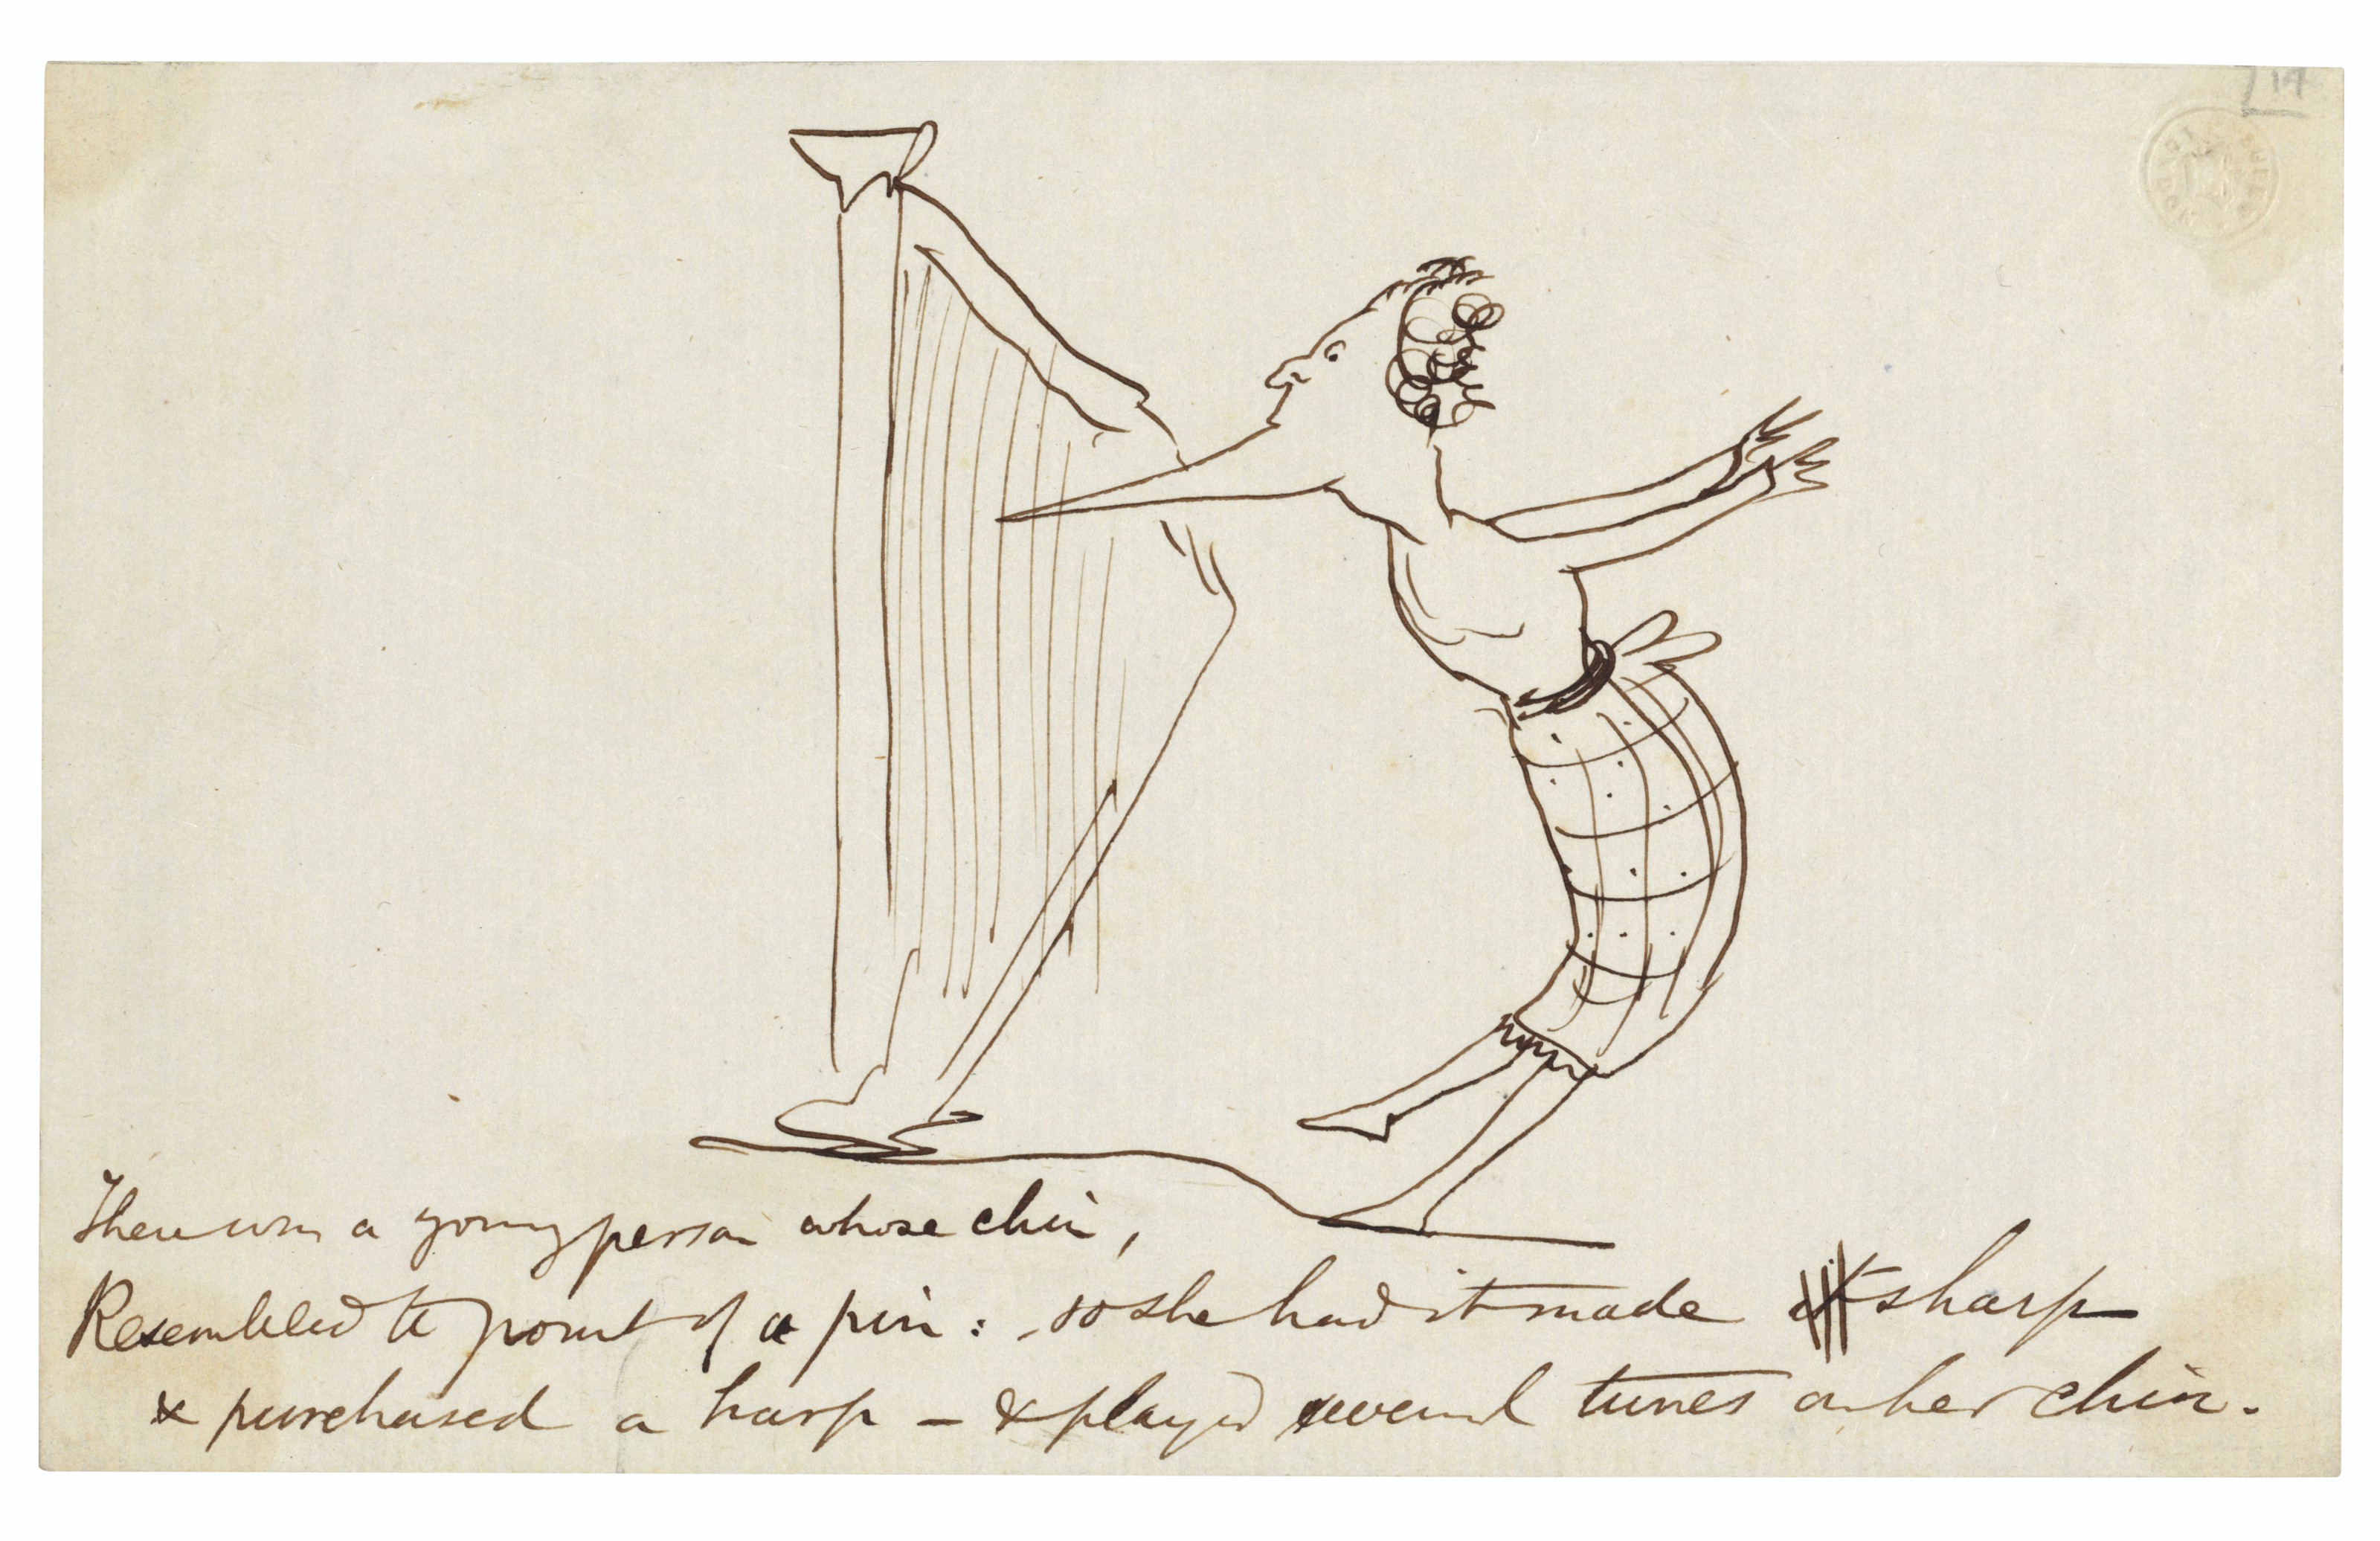 14
There was a young person whose chin,
Resembled the point of a pin: - so she had it made sharp
& purchased a harp - & played several tunes on her chin.